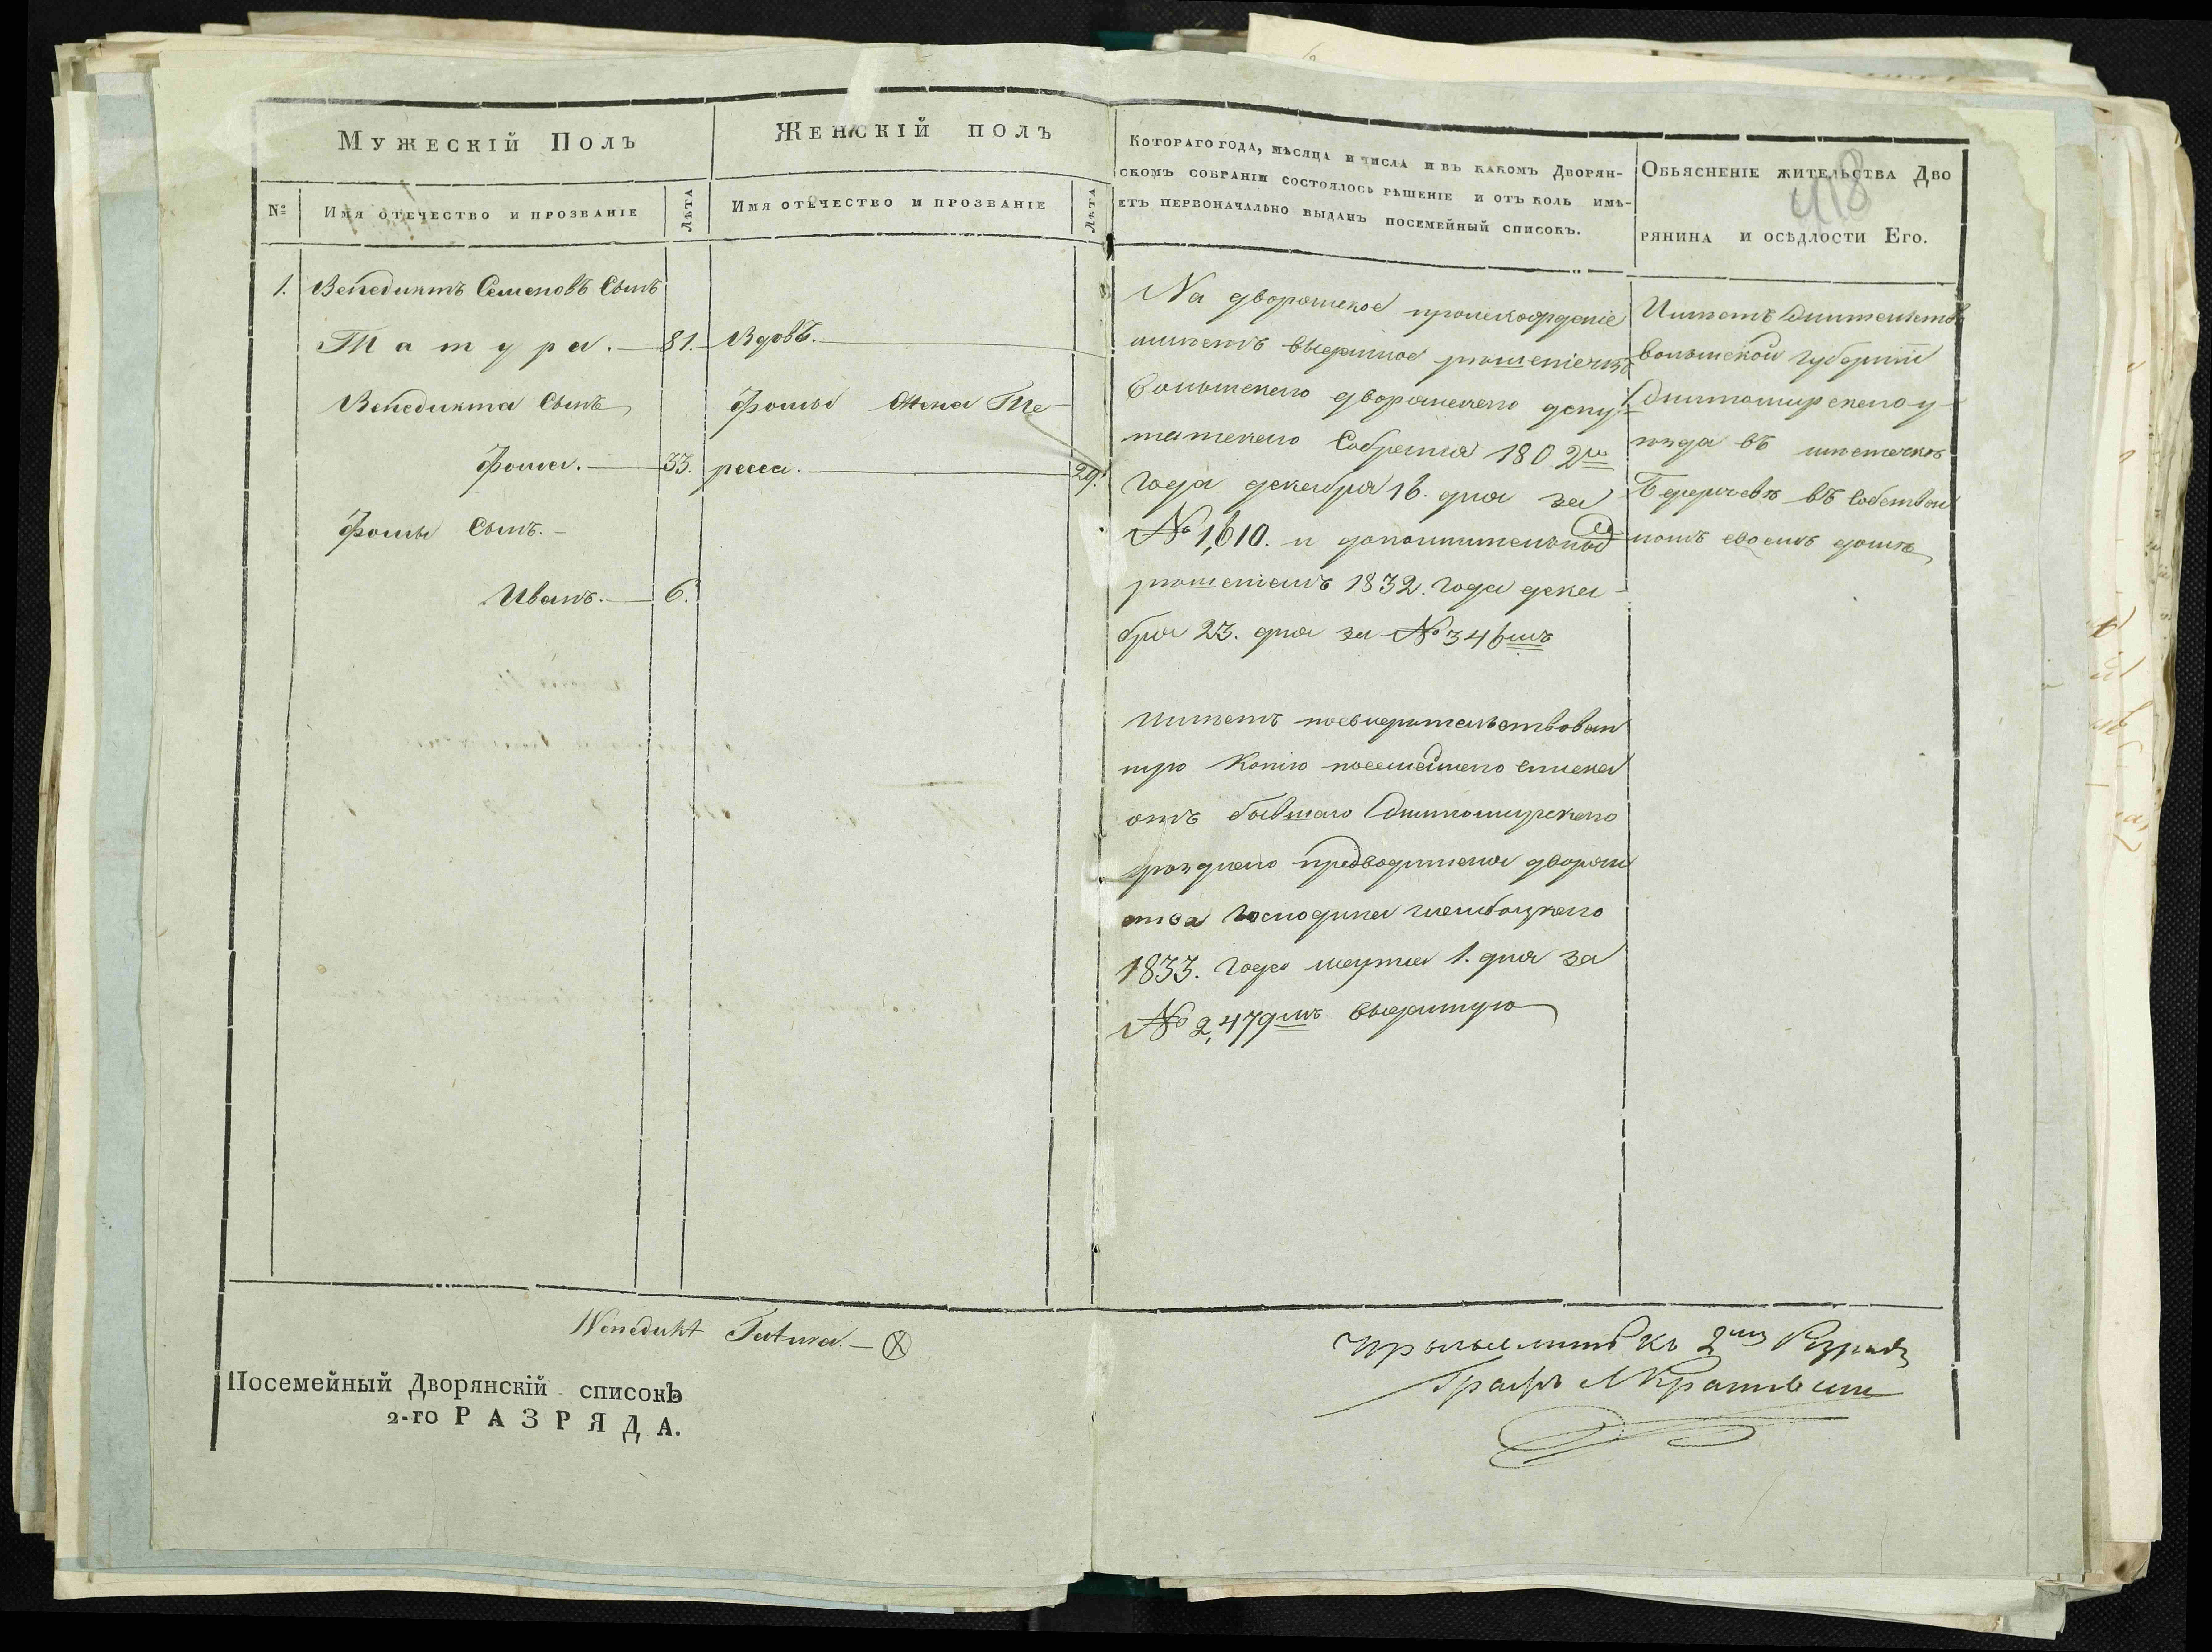 Мужескій Полъ
Женскій полъ
Котораго года, мѣсяца и числа и въ какомъ Дворян-
скомъ собраніи состоялось рѣшеніе и отъ коль имѣ-
етъ первоначально выданъ посемейный списокъ.
Обьясненіе жительства Дво
рянина и осѣдлости Его.
418
№
Имя отечество и прозваніе
Лѣта
Имя отечество и прозваніе
Лѣта
1. Венедиктъ Семеновъ Сынъ
Татура. 81.
Венедикта Сынъ
Фома. 33.
Фомы Сынъ.
Иванъ. 6.
Вдовъ.
Фомы Жена Те-
ресса. 29.
На дворянское происхожденіе
имѣетъ выданное рѣшеніемъ
Волынскаго дворянскаго депу-
татскаго Собранія 1802го
года декабря 16. дня за
№ 1,610. и дополнительное
рѣшеніемъ 1832. года дека-
бря 23. дня за № 346мъ
Имѣетъ посвидѣтельствован
ную Копію посемейнаго списка
отъ бывшаго Житомирскаго
уѣзднаго предводителя дворян
ства Господина
1833. года марта 1. дня за
№ 2,479мъ выданную
Имѣетъ Жительство
Волынской Губерніи
Житомирскаго у-
ѣзда въ мѣстечкѣ
Бердичевѣ въ Собствен
номъ своемъ домѣ
Wenedukt Tatura. — X
Посемейный Дворянскій списокъ
2-го РАЗРЯДА.
къ 2му Розряду
Графъ